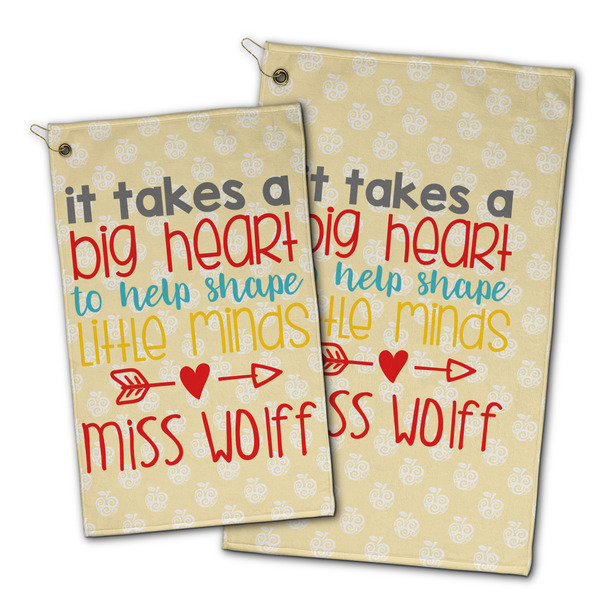 it takes a
big heart
to help shape
little minds
miss wolff
it takes a
big heart
help shape
minds
wolff